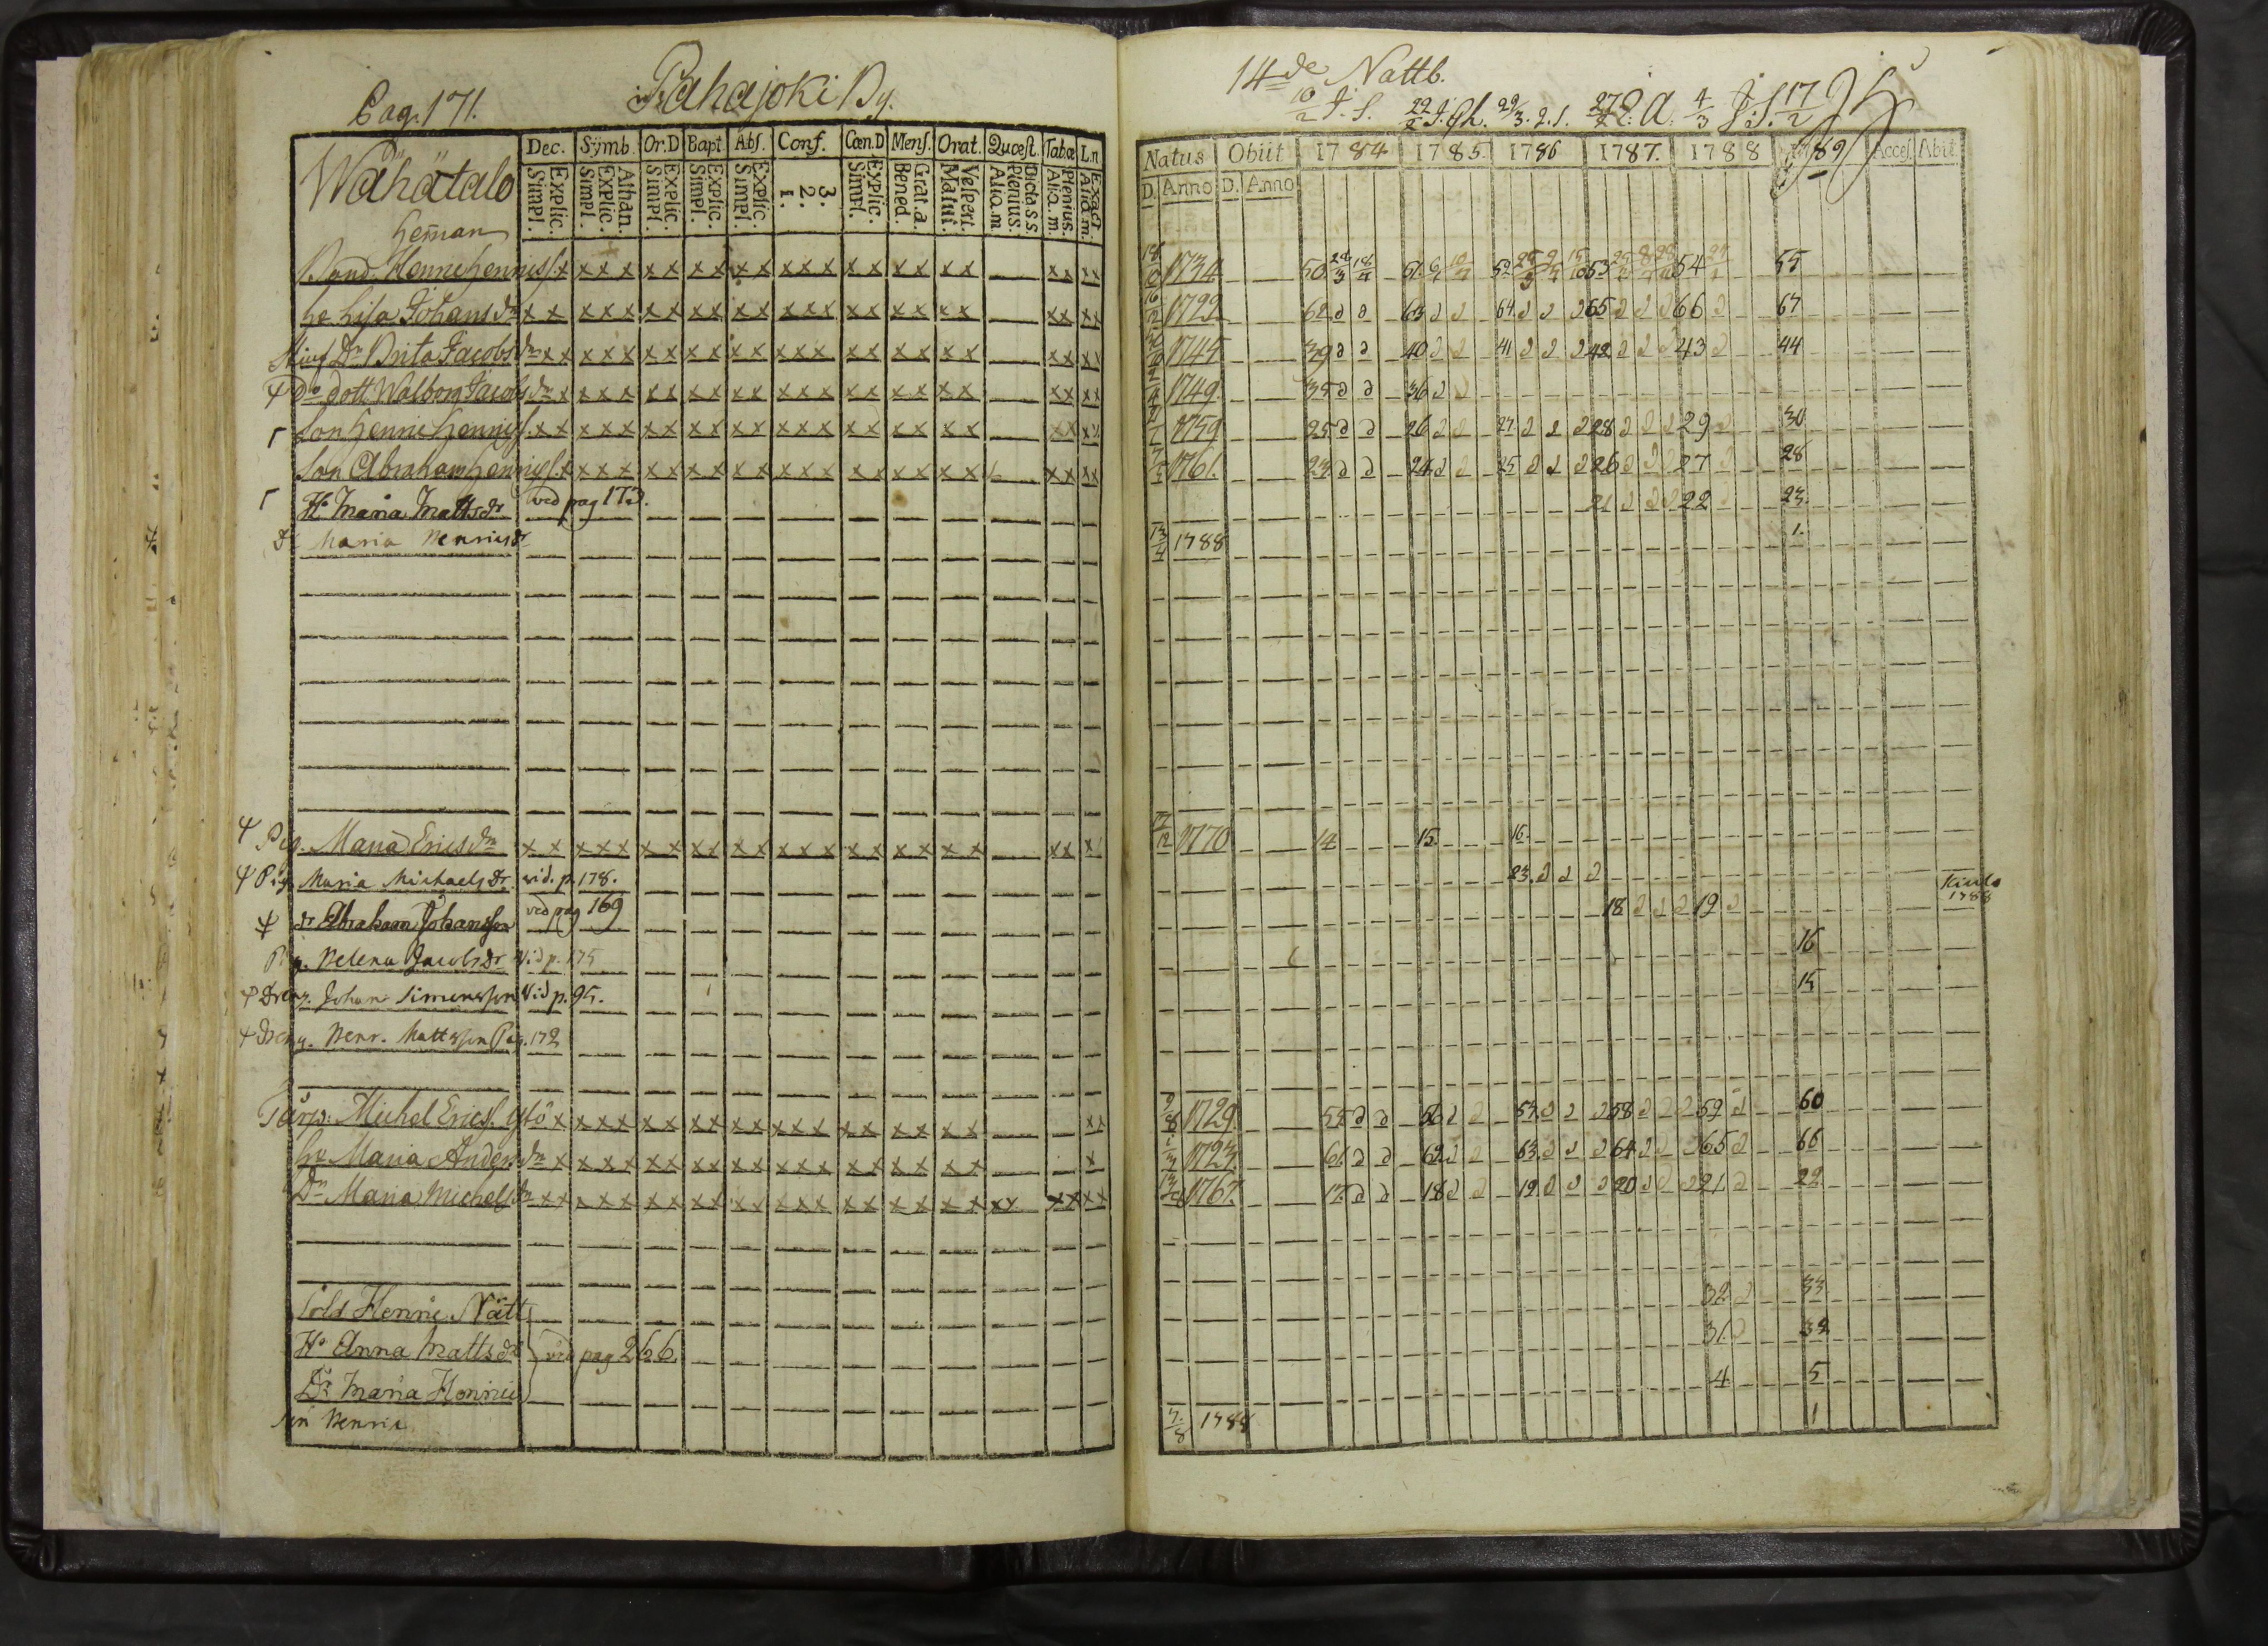 Pag. 171. Pahajoki By.
Wähätalo Dec. Symb. Or.D Bapt Abs. Conf. Cœn.D Mens. Orat. Quœst. Tabœ L.n
heman
Explic. Simpl. Athan. Explic. Simpl. Explic. Simpl. Explic. Simpl. Explic. Simpl. 3. 2. 1. Explic. Simpl. Grat. a. Bened. Vespert. Matut. Dicta S.S. Plenius. Alia. m Plenius. Alia. m. Exact. Aliq. m.
Bond. Henric Henrics. x x x x x x x x x x x x x x x x x x x x x x x x
hu Lisa Johans dr x x x x x x x x x x x x x x x x x x x x x x x x
Brita Jacobs dr x x x x x x x x x x x x x x x x x x x x x x x x
dott Walborg Jacobs dr x x x x x x x x x x x x x x x x x x x x x x x
Son Henric Henrics. x x x x x x x x x x x x x x x x x x x x x x x x
Son Abraham Henrics. x x x x x x x x x x x x x x x x x x x x x x x
Hu Maria Matts dr vid pag 173.
Dr Maria Henrics dr
Pig. Maria Erics dr x x x x x x x x x x x x x x x x x x x x x x x x
Pig. Maria Michaels Dr vid. p. 178.
dr Abraham Johansson vid pag 169
Pig. Helena Jacobs dr Vid p. 175
Dreng. Johan Simonsson Vid p. 95.
Dreng. Henr. Mattsson Pag. 172
Torp: Michel Erics. x x x x x x x x x x x x x x x x x x x x x
hu Maria Anders dr x x x x x x x x x x x x x x x x x x x x
Dr Maria Michels dr x x x x x x x x x x x x x x x x x x x x x x x x x x
Sold Henric Nätt
Hu Anna Matts dr vid pag 266
Dr Maria Henrics
son Henric
14de Nattb.
10/2 J. S. 22/2 29/3. 27/2 A. 4/3 J. S. 17/2
Natus Obiit 1784 1785. 1786 1787. 1788 1789 Acces Abit
D. Anno D. Anno
1734 50 51 52 53 54 55
1722 62 63 64 65 66 67
1745 39 40 41 42 43 44
1749. 35 36
1759 25 26 27 28 29 30
1761. 23 24 25 26 27 28
21 22 23.
1788 1.
1770 14 15. 16.
23.
18 19 1788
16
15
1729. 55 56 57 58 59 60
1723. 61 62 63 64 65 66
1767. 17 18 19 20 21 22
32 33
31. 32
4 5
7/8 1788 1